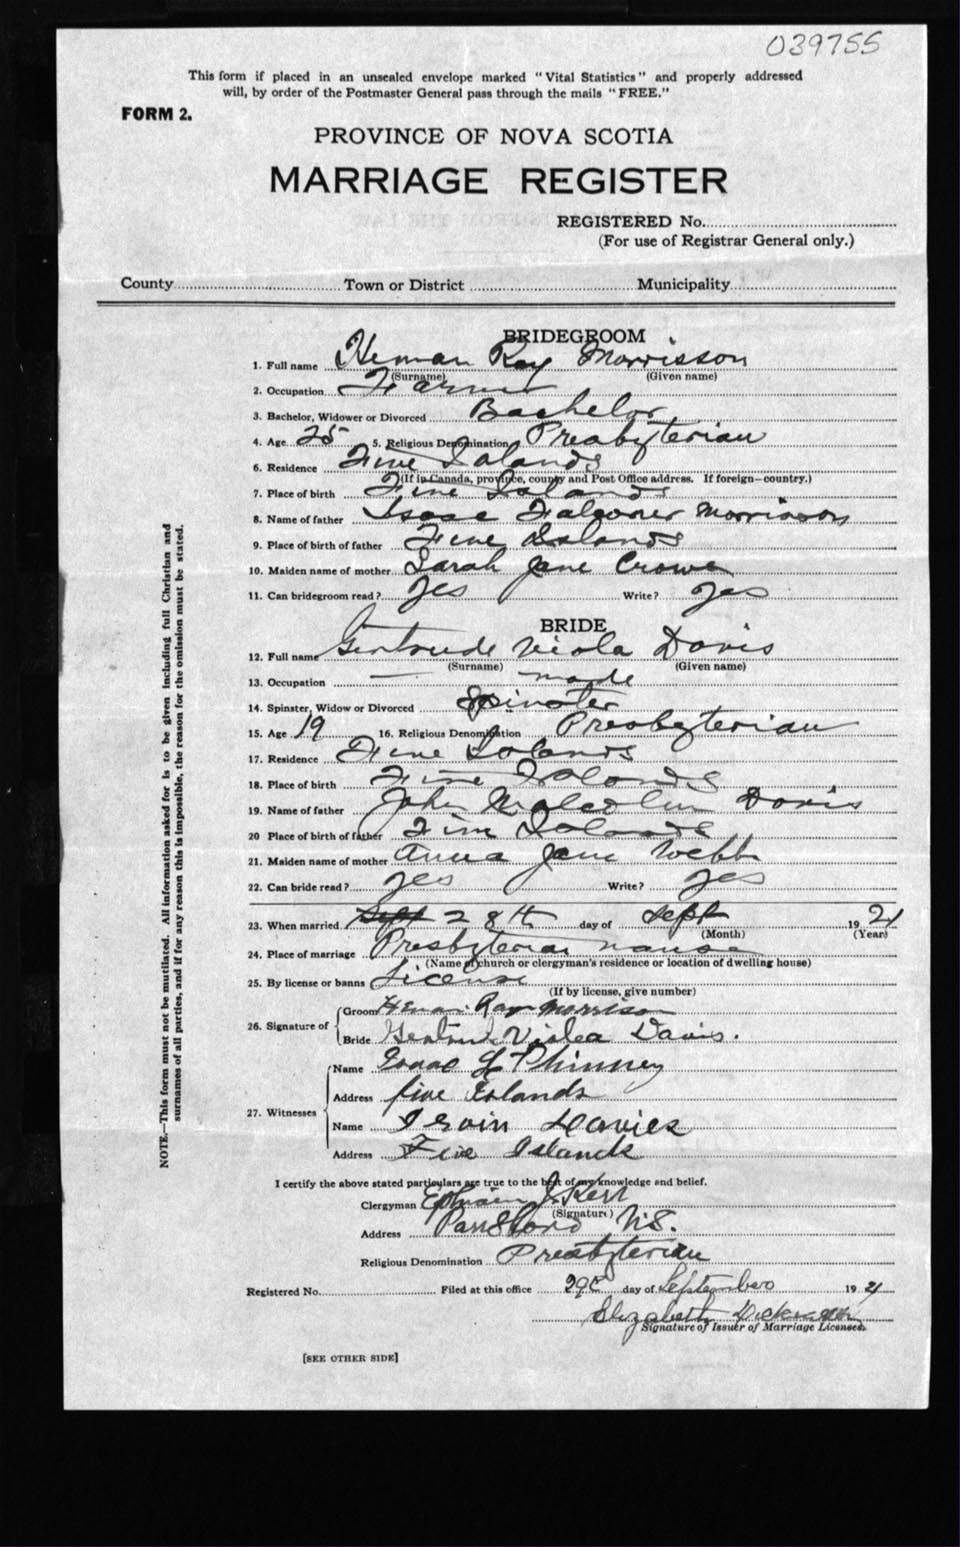 039755
This form if placed in an unsealed envelope marked "Vital Statistics" and properly addressed
will, by order of the Postmaster General pass through the mails "FREE."
FORM 2.
PROVINCE OF NOVA SCOTIA
MARRIAGE REGISTER
REGISTERED No.
(For use of Registrar General only.)
County Town or District Municipality
BRIDEGROOM
1. Full name Heman Ray Morrisson
(Surname) (Given name)
2. Occupation Farmer
3. Bachelor, Widower or Divorced Bachelor
4. Age 25 5. Religious Denomination Presbyterian
6. Residence Five Islands
(If in Canada, province, county and Post Office address. If foreign—country.)
7. Place of birth Five Islands
8. Name of father Isaac Falconer Morrisson
9. Place of birth of father Five Islands
10. Maiden name of mother Sarah Jane Crowe
11. Can bridegroom read? Yes Write? Yes
BRIDE
12. Full name Gertrude Viola Davis
(Surname) (Given name)
13. Occupation
14. Spinster, Widow or Divorced Spinster
15. Age 19 16. Religious Denomination Presbyterian
17. Residence Five Islands
18. Place of birth Five Islands
19. Name of father John Malcolm Davis
20 Place of birth of father Five Islands
21. Maiden name of mother Anna Jane Webb
22. Can bride read? Yes Write? Yes
23. When married 28th day of Sept 1921
(Month) (Year)
24. Place of marriage Presbyterian manse
(Name of church or clergyman's residence or location of dwelling house)
25. By license or banns License
(If by license, give number)
26. Signature of
Groom Heman Ray Morrison
Bride Gertrude Violea Davis.
27. Witnesses
Name Isaac L Phinney
Address five Islands
Name Irvin Davies
Address Five Islands
I certify the above stated particulars are true to the best of my knowledge and belief.
Clergyman Ephraim J. Kerr
(Signature)
Address Parrsboro N.S.
Religious Denomination Presbyterian
Registered No. Filed at this office 29 day of September 1921
Elizabeth
Signature of Issuer of Marriage Licenses.
[SEE OTHER SIDE]
NOTE.—This form must not be mutilated. All information asked for is to be given including full Christian and
surnames of all parties, and if for any reason this is impossible, the reason for the omission must be stated.